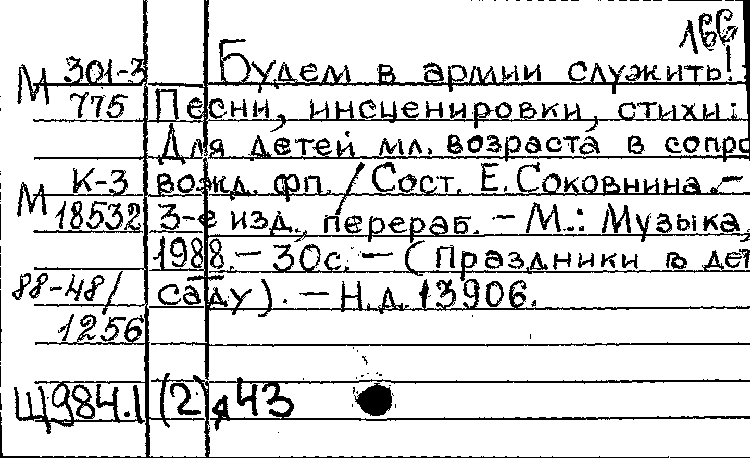 166
М 301-3 Будем в армии служить!:
775 Песни, инсценировки, стихи:
Для детей мл. возраста в сопро
М К-3 вожд. фп. / Сост. Е. Соковнина.—
18532 3-е изд., перераб. — М.: Музыка,
1988. — 30с. — (Праздники в дет
88-48/ саду). — Н.д. 13906.
1256
Щ984.1 (2) я43